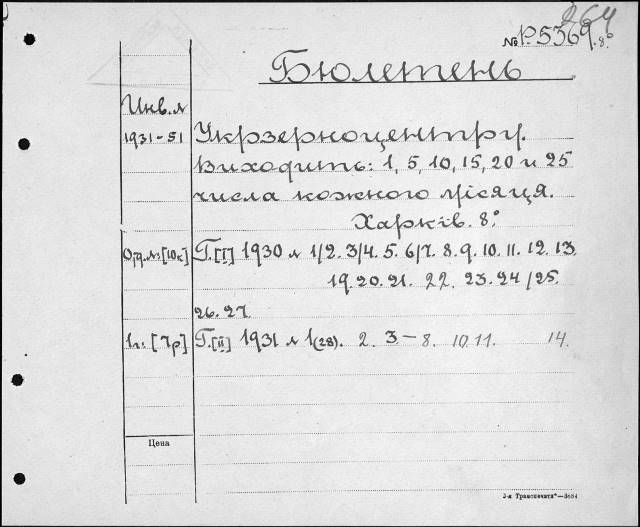 264
№ Р.5369. 8°
Бюлетень
Инв. №
1931-51 Укрзерноцентру.
Виходить: 1, 5, 10, 15, 20 и 25
числа кожного місяця.
Харків. 8°.
Г.[I] 1930 № 1/2. 3/4. 5. 6/7. 8. 9. 10. 11. 12. 13.
19. 20. 21. 22. 23. 24/25.
26. 27.
Г.[II] 1931 № 1(28). 2. 3-8. 10. 11. 14.
Цена